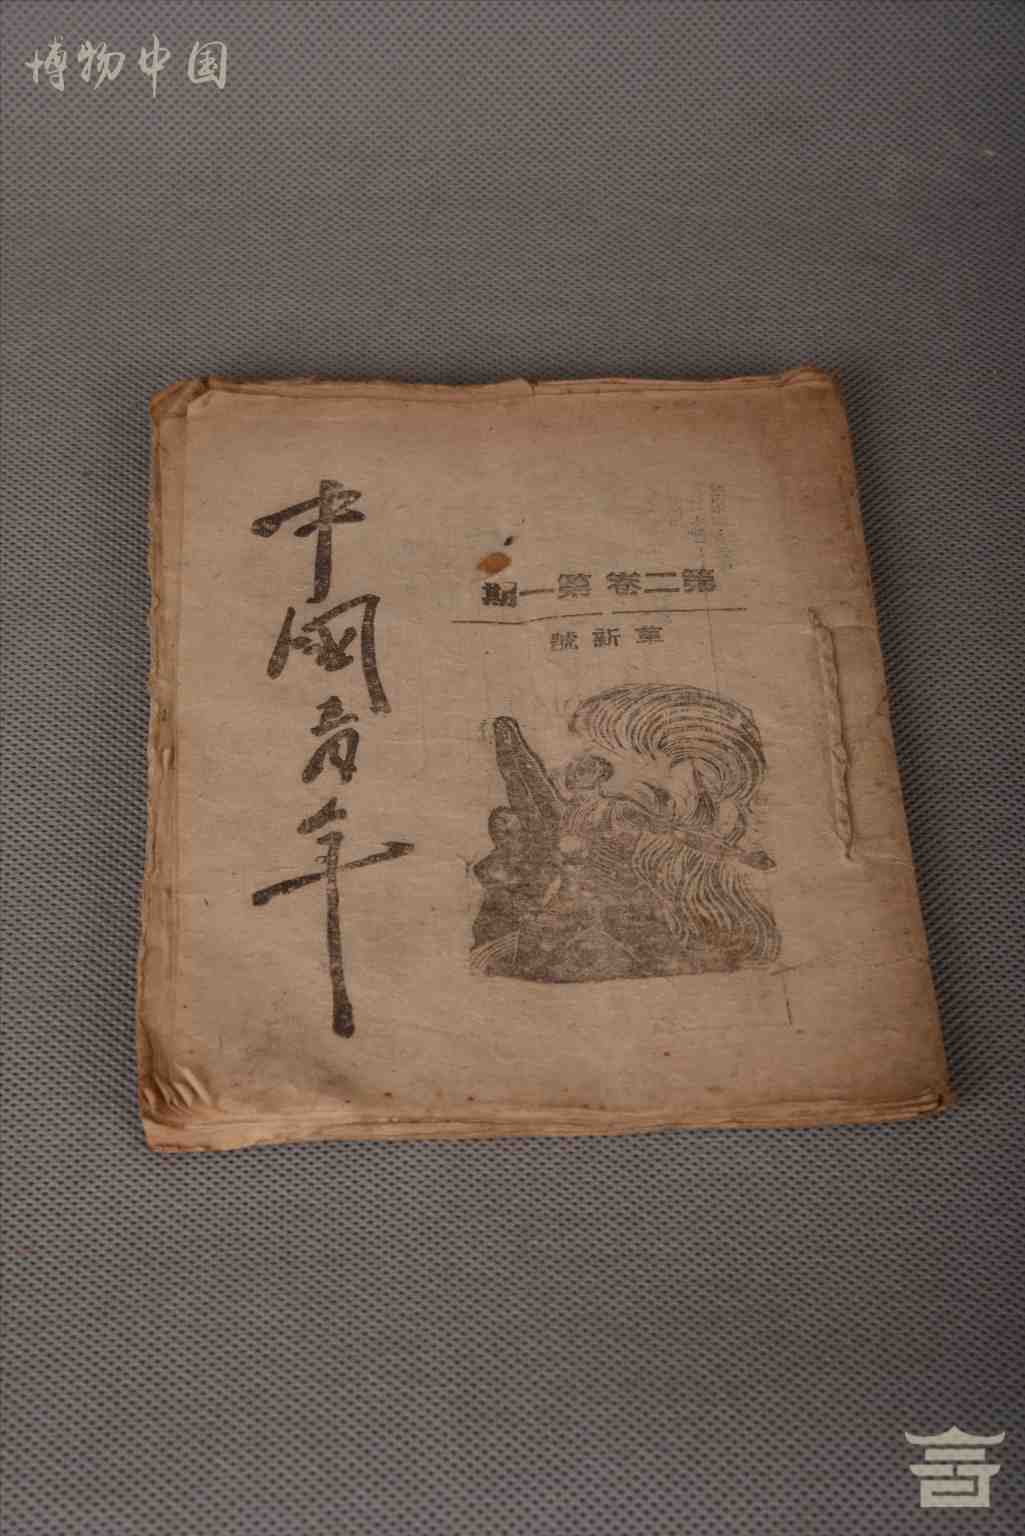 博物中国
中國青年
第二卷 第一期
革新號